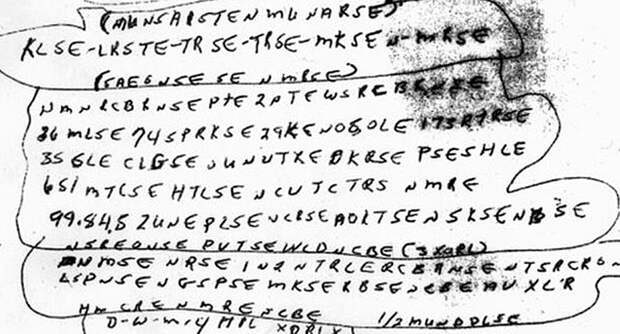 (MUNSARSTEN MUNARSE)
KLSE-LRSTE-TRSE-TRSE-MKSEN-MRSE
(SAEGNSE SE N MRSE)
NMNRCBRNSE PTE2 NTEWSRCBRNSE
36 MLSE 74SPRKSE 29KENOSOLE 173RTRSE
35 GLE CLGSE UNUTXE DKRSE PSESHLE
651 MTCSE HTLSE NCUTCTRS NMRE
99.84.5 2UNE PLSE NCRSE AOLTSE NSKSE N SE
NSREONSE PVTSE WLD NCBE (3XORL)
NMSE NRSE IN2NTRLERCBRNSE NTSRCR
LSPNSE NGSPSE MKSE RBSE NCBE AUXLR
HM CRE NMRE NCBE 1/2 MUNDDLSE
D-W-M-4 MPL XDRLX